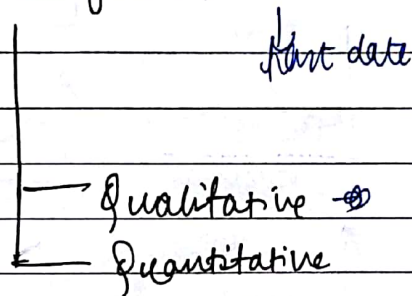 date
Qualitative →
Quantitative